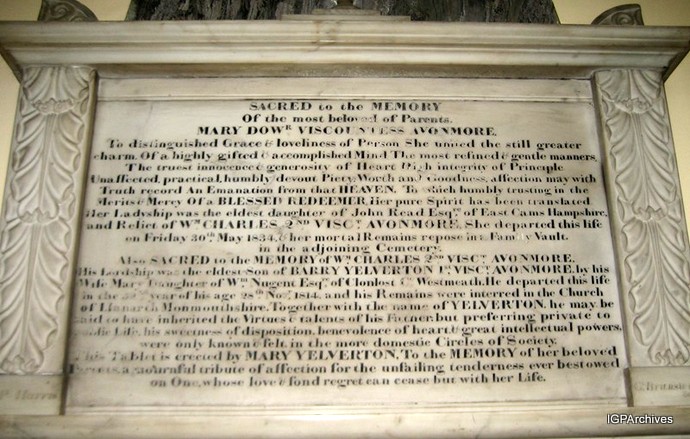 SACRED to the MEMORY
Of the most beloved of Parents.
MARY DOWR VISCOUNTESS AVONMORE.
To distinguished Grace & loveliness of Person She united the still greater
charm, Of a highly gifted & accomplished Mind The most refined & gentle manners,
The truest innocence & generosity of Heart High integrity of Principle
Unaffected, practical, humbly devout Piety Worth and Goodness, affection may with
Truth record An Emanation from that HEAVEN. To which humbly trusting in the
Merits & Mercy Of a BLESSED REDEEMER, Her pure Spirit has been translated
Her Ladyship was the eldest daughter of John Read Esqr. of East Cams Hampshire,
and Relict of Wm CHARLES 2ND VISCT. AVONMORE. She departed this life
on Friday 30th May 1834, & her mortal Remains repose in a Family Vault.
in the adjoining Cemetery.
Also SACRED to the MEMORY of Wm CHARLES 2ND VISCT. AVONMORE.
His Lordship was the eldest Son of BARRY YELVERTON 1st VISCT. AVONMORE, by his
Wife Mary Daughter of Wm Nugent Esqr. of Clonlost Co. Westmeath. He departed this life
in the year of his age 28th Novr. 1814, and his Remains were interred in the Church
of Llanarth Monmouthshire. Together with the name of YELVERTON, he may be
said to have inherited the Virtues & talents of his Father, but preferring private to
public Life, his sweetness of disposition, benevolence of heart, & great intellectual powers,
were only known & felt, in the more domestic Circles of Society.
This Tablet is erected by MARY YELVERTON, To the MEMORY of her beloved
Parents, a mournful tribute of affection for the unfailing tenderness ever bestowed
on One, whose love & fond regret can cease but with her Life.
Harris
IGPArchives